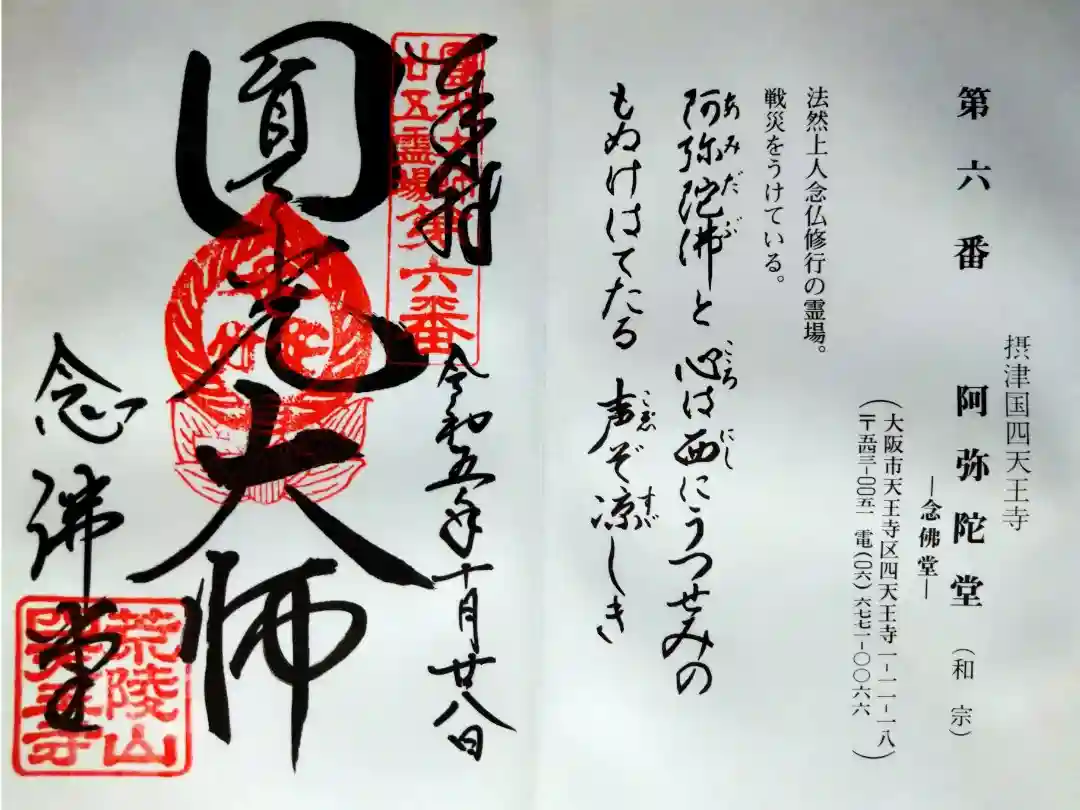 摂津国四天王寺
第六番 阿弥陀堂(和宗)
―念佛堂―
(大阪市天王寺区四天王寺一-一一-一八
〒五四三-〇〇五一 電(〇六)六七七一-〇〇六六)
法然上人念仏修行の霊場。
戦災をうけている。
阿弥陀佛と 心は西にうつせみの
あみだぶ こころ にし
もぬけはてたる 声ぞ凉しき
こゑ すゞ
奉拝
令和五年十月廿八日
廿五霊場第六番
圓光大師
念佛堂
荒陵山